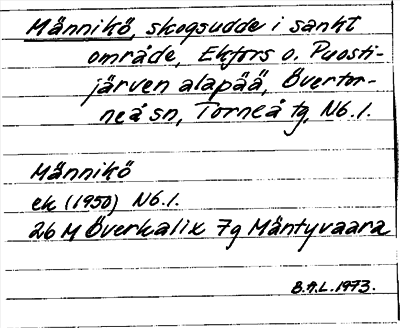 Männikö, skogsudde i sankt
område, Ekfors o. Puosti-
järven alapää, Övertor-
neå sn, Torneå tg, Nb.l.
Männikö
ek (1950) Nb.l.
26 M Överkalix 7g Mäntyvaara
B.A.L. 1973.